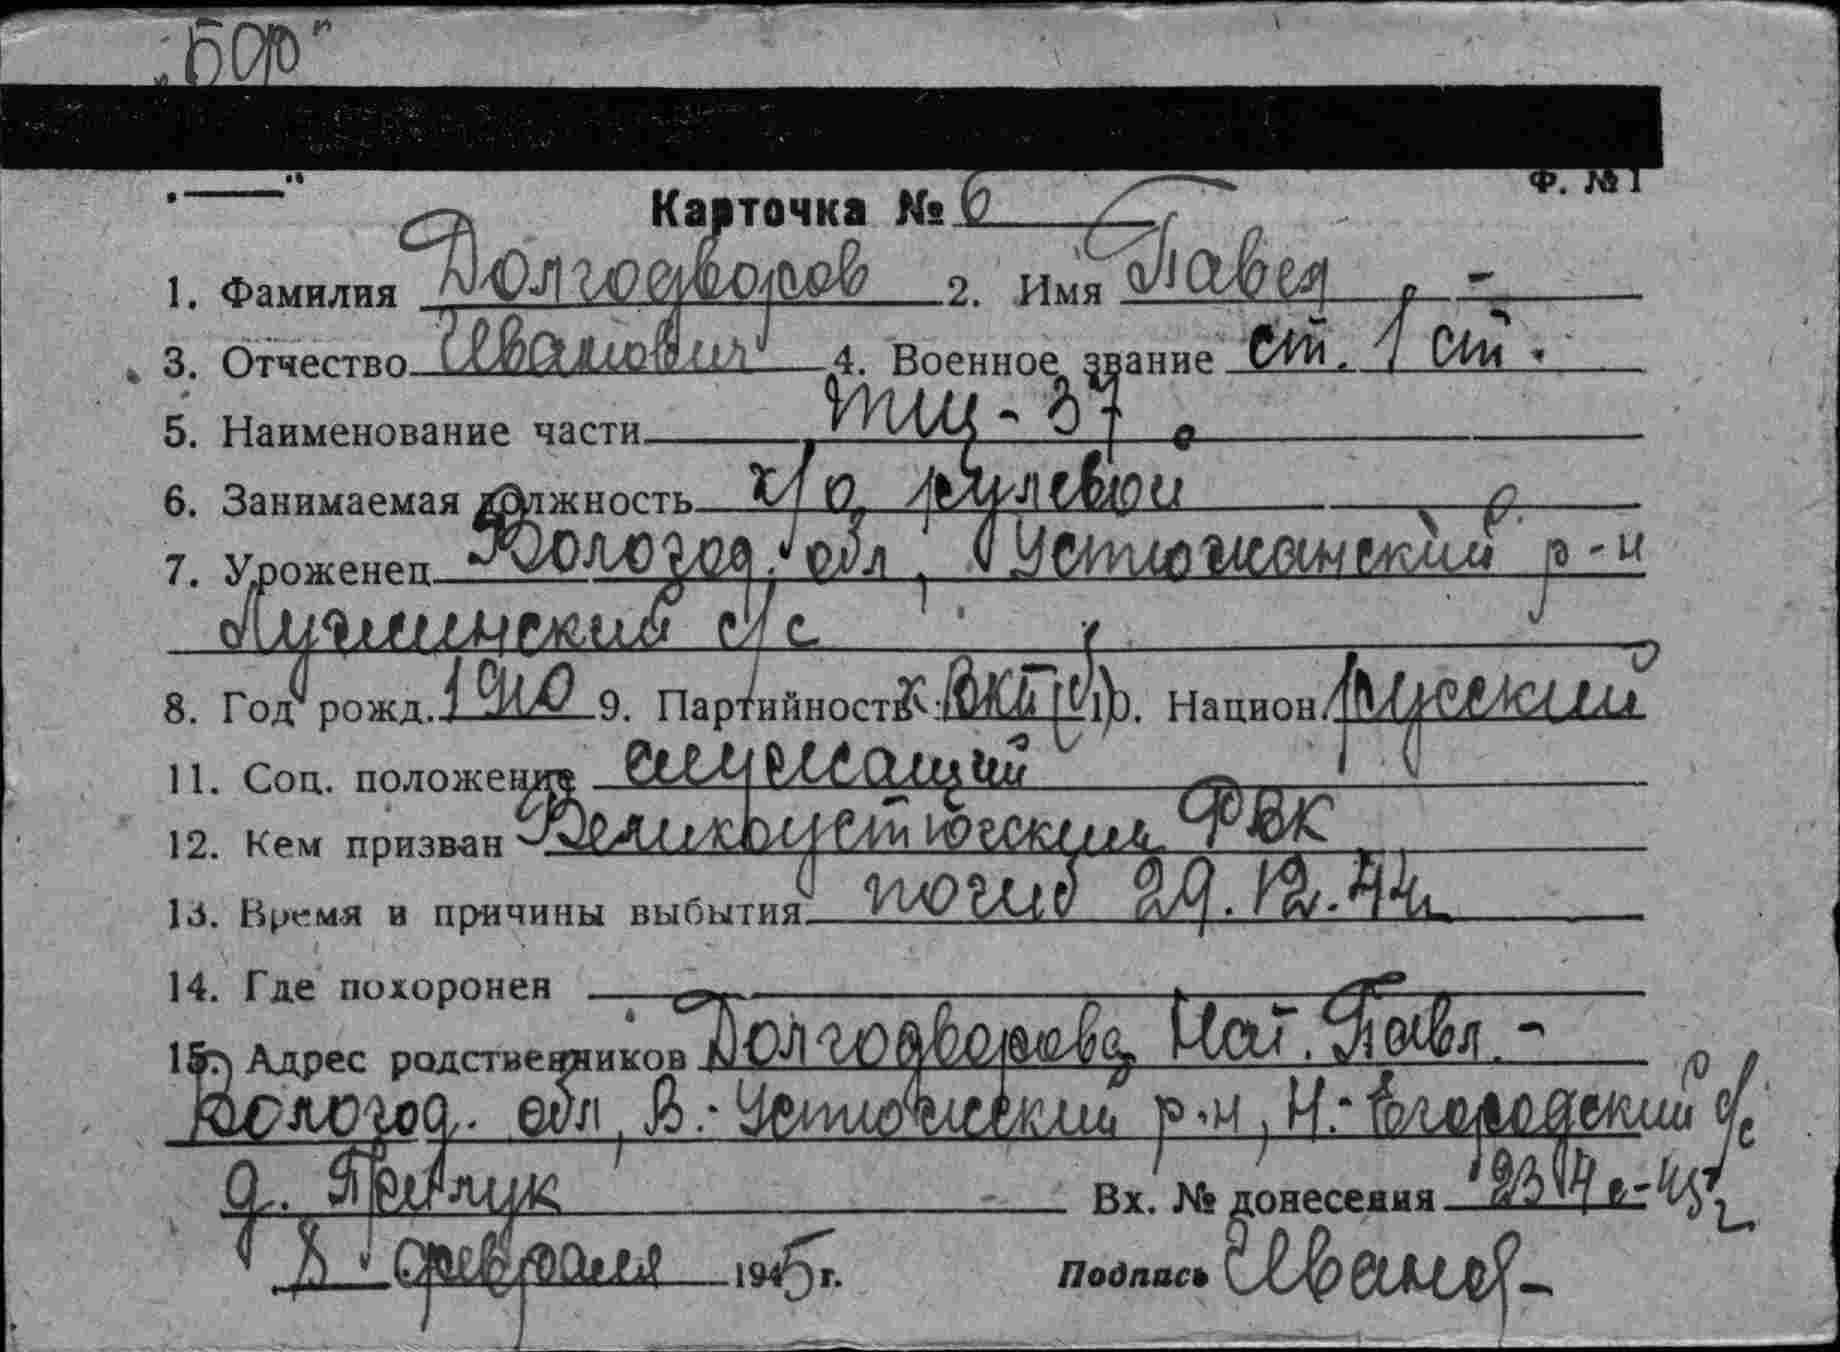 „БФ"
Ф. № 1
Карточка № 6
1. Фамилия Долгодворов 2. Имя Павел -
3. Отчество Иванович 4. Военное звание ст. 1 ст.
5. Наименование части ТЩ-37
6. Занимаемая должность к/о рулевой
7. Уроженец Вологод. обл, Устюжанский р-н
с/с
8. Год рожд. 1910 9. Партийность к. ВКП(б) 10. Национ. русский
11. Соц. положение служащий
12. Кем призван Великоустюгский РВК
13. Время и причины выбытия погиб 29.12.44
14. Где похоронен
15. Адрес родственников Долгодворова Нат. Павл. -
Вологод. обл, В.-Устюжский р-н, Н.-Егородский с/с
д. Прилук Вх. № донесения 2314с-45г
8 февраля 1945 г. Подпись Иванов